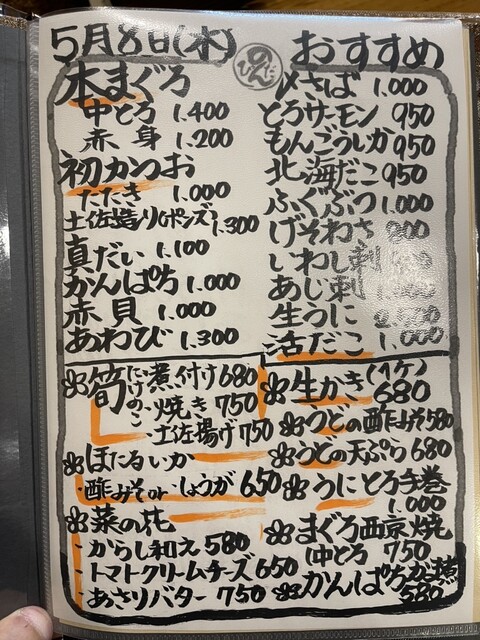 5月8日(木)
おすすめ
本まぐろ
中とろ 1.400
赤身 1.200
初かつお
たたき 1.000
土佐造り(ポンズ) 1.300
真だい 1.100
かんぱち 1.000
赤貝 1.000
あわび 1.300
〆さば 1.000
とろサーモン 950
もんごういか 950
北海だこ 950
ふぐぶつ 1.000
げそわさ
いわし刺
あじ刺
生うに
活だこ 1.000
筍 煮付け 680
たけのこ
焼き 750
土佐揚げ 750
ほたるいか
酢みそor しょうが 650
菜の花
・からし和え 580
・トマトクリームチーズ 650
・あさりバター 750
生かき (1ヶ) 680
うどの酢みそ 580
うどの天ぷら 680
うにとろ手巻 1.000
まぐろ西京焼
(中とろ 750
かんぱちかま 580